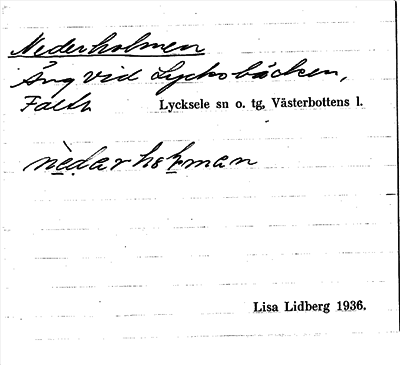 Nederholmen
Äng vid Lycksbäcken,
Lycksele sn o. tg, Västerbottens l.
Lisa Lidberg 1936.